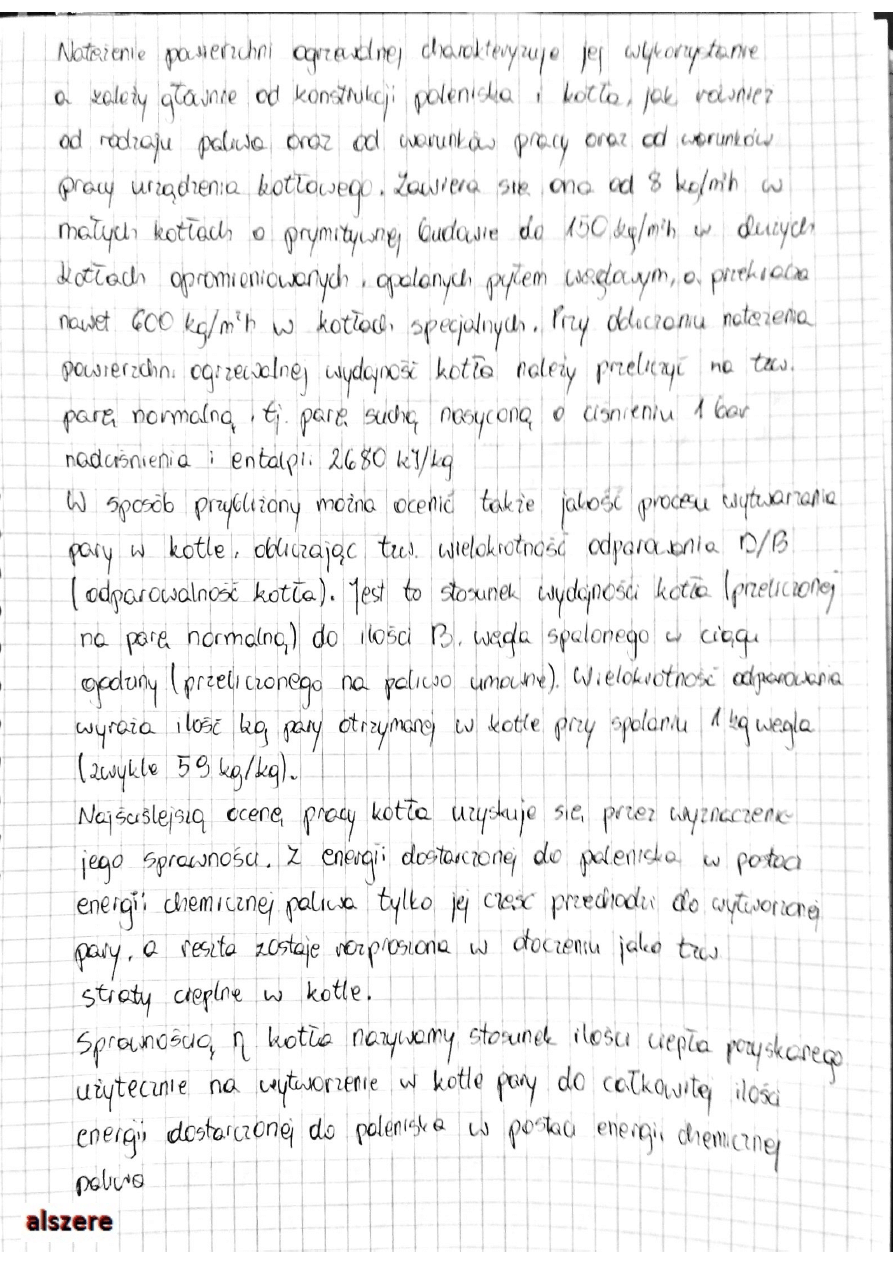 Natężenie powierzchni ogrzewalnej charakteryzuje jej wykorzystanie
a zależy głównie od konstrukcji paleniska i kotła, jak również
od rodzaju paliwa oraz od warunków pracy oraz od warunków
pracy urządzenia kotłowego. Zawiera się ona od 8 kg/m²h w
małych kotłach o prymitywnej budowie do 150 kg/m²h w dużych
kotłach opromieniowanych, opalanych pyłem węglowym, a przekracza
nawet 600 kg/m²h w kotłach specjalnych. Przy obliczaniu natężenia
powierzchni ogrzewalnej wydajność kotła należy przeliczyć na tzw.
parę normalną, tj. parę suchą nasyconą o ciśnieniu 1 bar
nadciśnienia i entalpii 2680 kJ/kg
W sposób przybliżony można ocenić także jakość procesu wytwarzania
pary w kotle, obliczając tzw. wielokrotność odparowania D/B
(odparowalność kotła). Jest to stosunek wydajności kotła (przeliczonej
na parę normalną) do ilości B, węgla spalonego w ciągu
godziny (przeliczonego na paliwo umowne). Wielokrotność odparowania
wyraża ilość kg pary otrzymanej w kotle przy spalaniu 1 kg węgla
(zwykle 59 kg/kg).
Najściślejszą ocenę pracy kotła uzyskuje się, przez wyznaczenie
jego sprawności. Z energii dostarczonej do paleniska w postaci
energii chemicznej paliwa tylko jej część przechodzi do wytworzonej
pary, a reszta zostaje rozproszona w otoczeniu jako tzw
straty cieplne w kotle.
Sprawnością η kotła nazywamy stosunek ilości ciepła pozyskanego
użytecznie na wytworzenie w kotle pary do całkowitej ilości
energii dostarczonej do paleniska w postaci energii chemicznej
paliwa
alszere